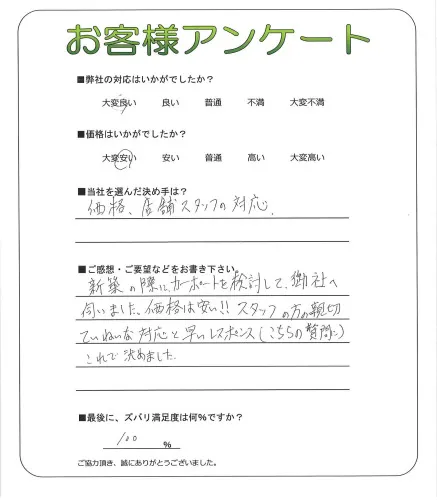 お客様アンケート
■弊社の対応はいかがでしたか？
大変良い 良い 普通 不満 大変不満
■価格はいかがでしたか？
大変安い 安い 普通 高い 大変高い
■当社を選んだ決め手は？
価格、店舗スタッフの対応。
■ご感想・ご要望などをお書き下さい。
新築の際に、カーポートを検討して、御社へ
伺いました、価格は安い!! スタッフの方の親切
ていねいな対応と早いレスポンス(こちらの質問に)
これで決めました。
■最後に、ズバリ満足度は何%ですか？
100 %
ご協力頂き、誠にありがとうございました。